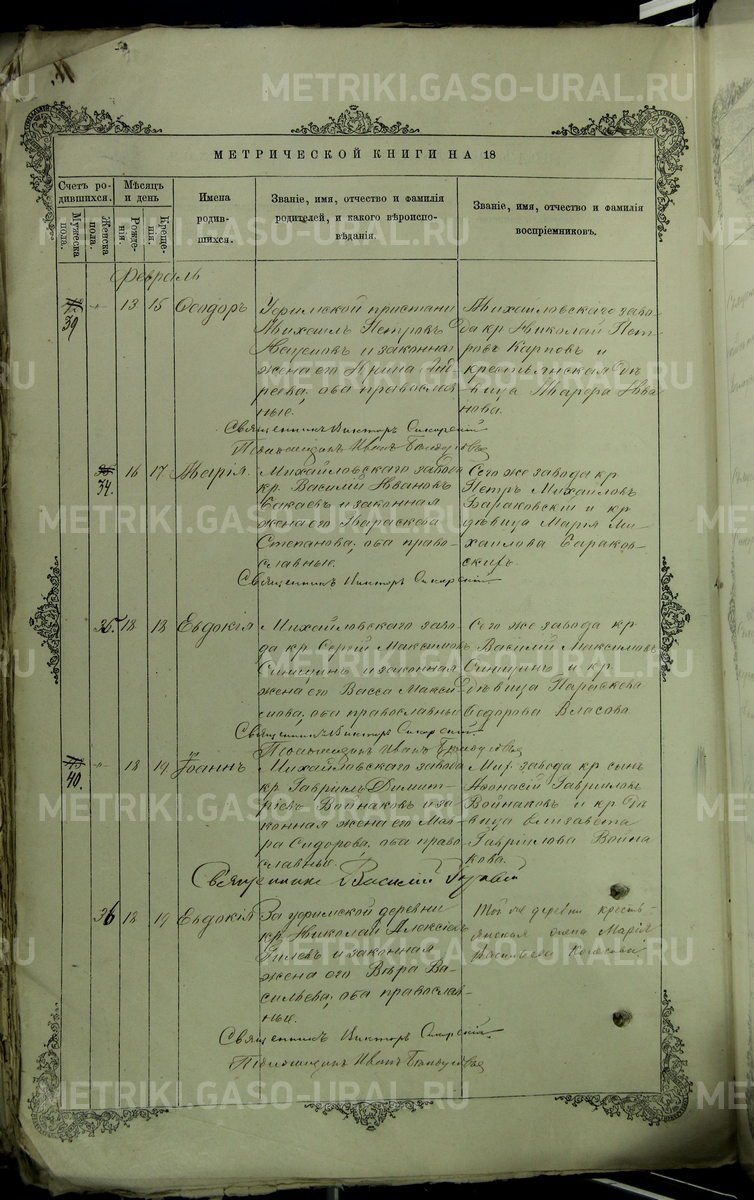 МЕТРИЧЕСКОЙ КНИГИ НА 18
Счетъ родившихся.
Мужеска пола.
Женска пола.
Мѣсяцъ и день
Рожденія.
Крещенія.
Имена родившихся.
Званіе, имя, отчество и фамилія родителей, и какого вѣроисповѣданія.
Званіе, имя, отчество и фамилія воспріемниковъ.
Февраль
39 13 15 Ѳеодоръ
Уфимской пристани
Михаилъ Петровъ
и законная
жена его Ирина
оба православные.
Михайловскаго завода
кр. Николай Петровъ
Карповъ и
крестьянская дѣвица
Варвара Иванова.
Священникъ Викторъ
Псаломщикъ Иванъ
34. 16 17 Марія
Михайловскаго завода
кр. Василій Ивановъ
и законная
жена его Параскева
Степанова, оба православные.
Сего же завода кр.
Петръ Михаиловъ
Бараковскій и кр.
дѣвица Марія Михаилова
Священникъ Викторъ
35. 18 18 Евдокія
Михайловскаго завода
кр. Сергій Максимовъ
Синицинъ и законная
жена его Васса Максимова,
оба православные
Сего же завода кр
Василій Максимовъ
Синицинъ и кр.
дѣвица Параскева
Ѳеодорова Власова
Священникъ Викторъ
Псаломщикъ Иванъ
40. 18 19 Іоаннъ
Михайловскаго завода
кр. Гавріилъ Димитріевъ
Войнаковъ и законная
жена его Мавра
Сидорова, оба православные.
Мих. завода кр. сынъ
Аѳонасій Гавріиловъ
Войнаковъ и кр. дѣвица
Елизавета
Гавріилова Войнакова.
Священникъ Василій
36 18 19 Евдокія
Зауфимской деревни
кр. Николай Алексіевъ
Гилевъ и законная
жена его Вѣра Васильева,
оба православные.
Той же деревни крестьянская
жена Марія
Васильева
Священникъ Викторъ
Псаломщикъ Иванъ
METRIKI.GASO-URAL.RU